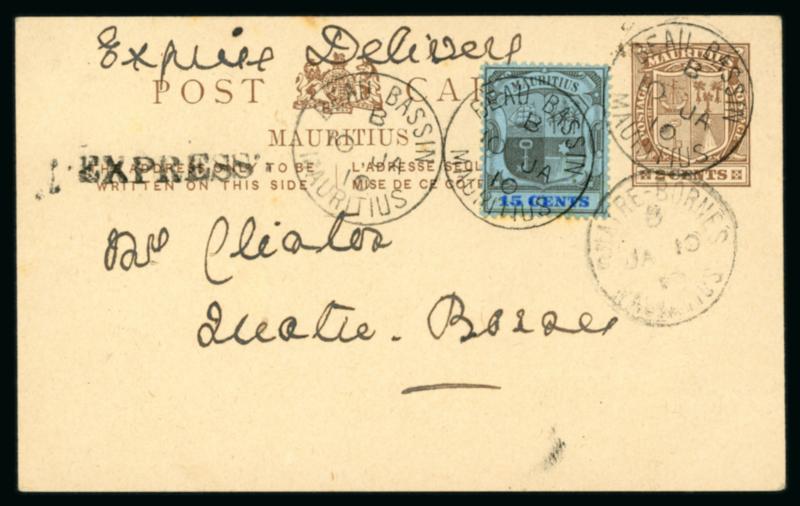 Express Delivery
POST CARD
MAURITIUS
WRITTEN ON THIS SIDE
MISE DE CE COTÉ
EXPRESS
MAURITIUS
15 CENTS
MAURITIUS
POSTAGE
2 CENTS
BEAU BASSIN
B
10 JA
10
MAURITIUS
BEAU BASSIN
B
10 JA
10
MAURITIUS
BEAU BASSIN
B
10 JA
10
MAURITIUS
QUATRE-BORNES
B
JA 10
10
MAURITIUS
Dr Cliator
Quatre-Bornes